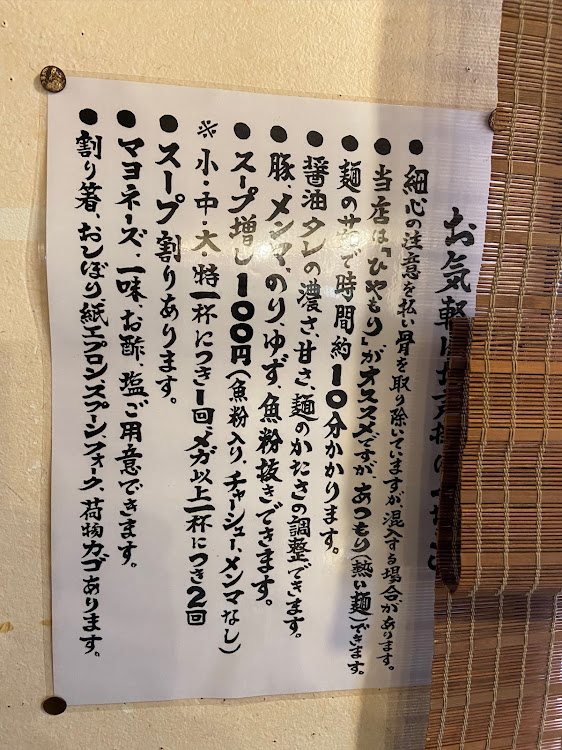 お気軽に
● 細心の注意を払い骨を取り除いていますが混入する場合があります。
● 当店は「ひやもり」がオススメですが、あつもり(熱い麺)できます。
● 麺のサイズで時間約10分かかります。
● 醤油タレの濃さ、甘さ、麺のかたさの調整できます。
● 豚、メンマ、のり、ゆず、魚粉抜きできます。
● スープ増し100円(魚粉入り、チャーシュー、メンマなし)
※小・中・大・特一杯につき1回、メガ以上一杯につき2回
● スープ割りあります。
● マヨネーズ、一味、お酢、塩、ご用意できます。
● 割り箸、おしぼり、紙エプロン、スプーン、フォーク、荷物カゴあります。